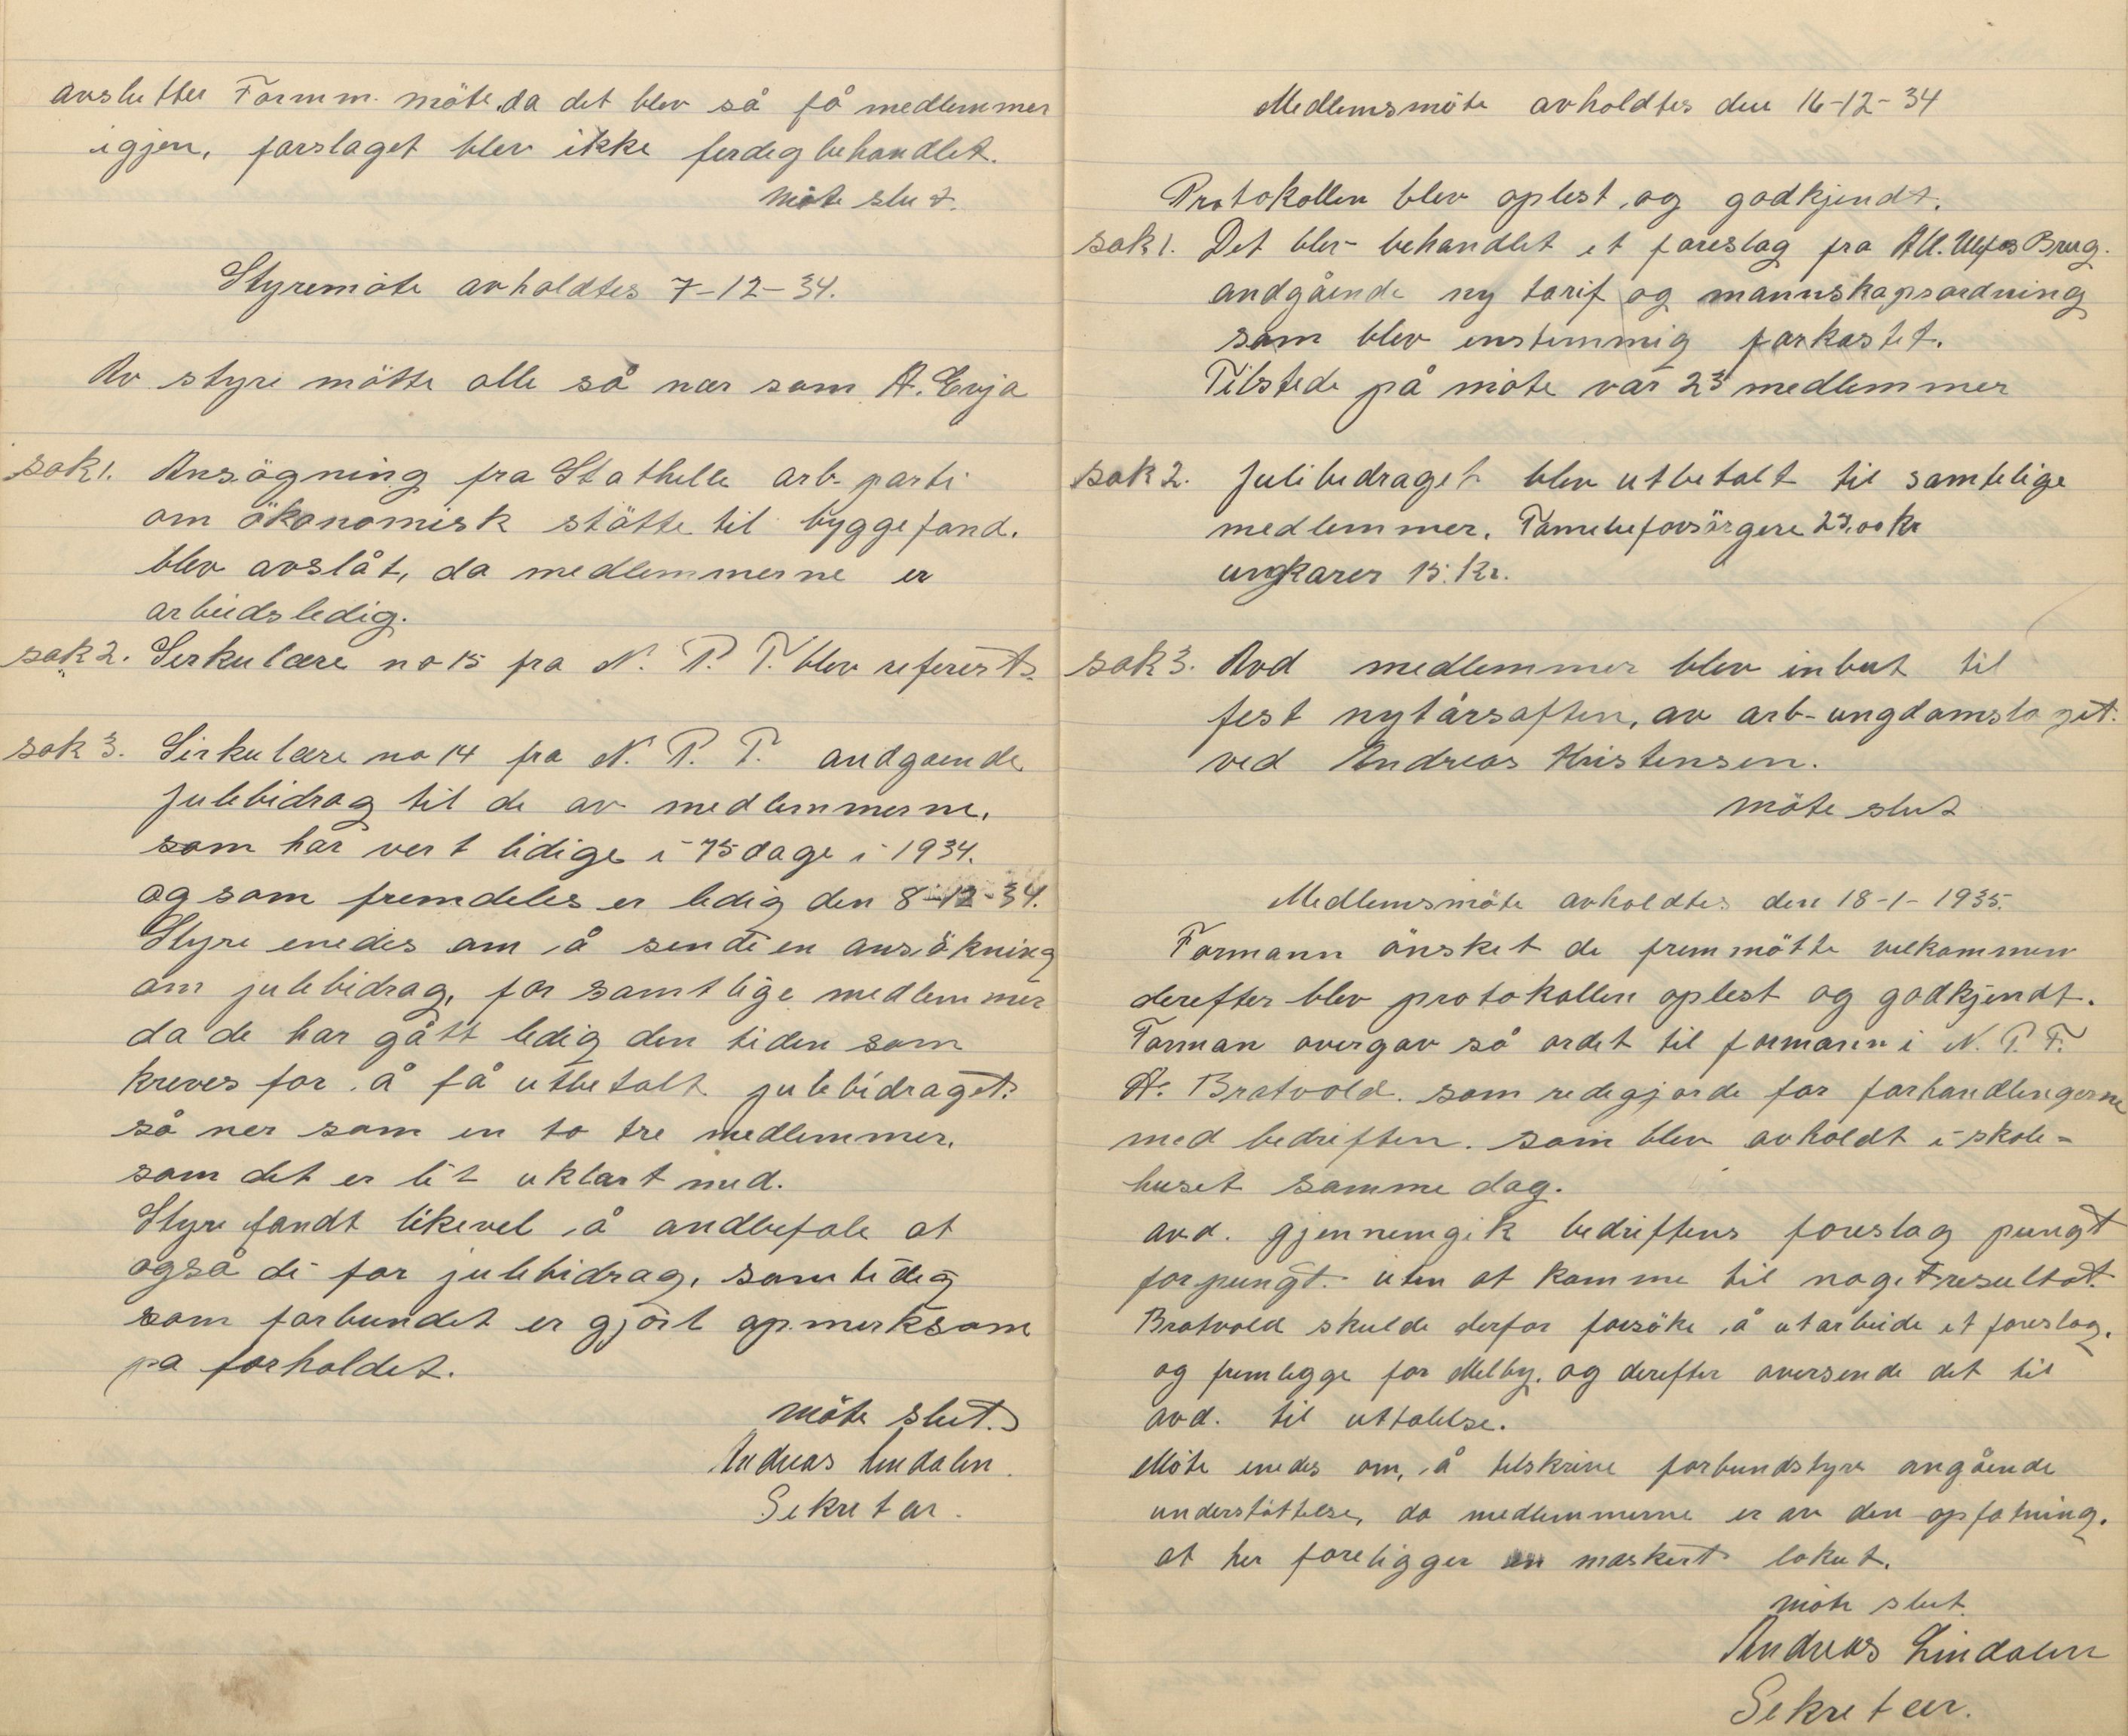 avslutter Formm. möte, da det blev så få medlemmer
igjen, forslaget blev ikke ferdigbehandlet.
möte slut.
Styremöte avholdtes 7-12-34.
Av styre mötte alle så nær som A. Evja
sak 1. Ansögning fra Stathelle arb-parti
om ökonomisk stötte til byggefond.
blev avslåt, da medlemmerne er
arbeidsledig.
sak 2. Serkulære no 15 fra N. P. F. blev referert.
sak 3. Sirkulære no 14 fra N. P. F. andgaende
julebidrag til de av medlemmerne,
som har vert ledige i 75 dage i 1934.
og som fremdeles er ledig den 8-12-34.
Styre enedes om å sende en ansökning
om julebidrag, for samtlige medlemmer
da de har gått ledig den tiden som
kreves for å få utbetalt julebidraget.
så ner som en to tre medlemmer,
som det er lit uklart med.
Styre fandt likevel å andbefale at
også de får julebidrag, samtidig
som forbundet er gjört opmerksom
på forholdet.
möte slut.
Andreas Lindalen.
Sekretær.
Medlemsmöte avholdtes den 16-12-34
Protokollen blev oplest, og godkjendt.
sak 1. Det blev behandlet et foreslag fra Ulefos Brug.
andgående ny tarif og mannskapsordning
som blev enstemmig forkastet.
Tilstede på möte var 23 medlemmer
sak 2. Julebedraget blev utbetalt til samtelige
medlemmer. Familieforsörgere 25,00 Kr
ungkarer 15. Kr.
sak 3. Avd medlemmer blev inbut til
fest nytårsaften, av arb-ungdomslaget.
ved Andreas Kristensen.
möte slut
Medlemsmöte avholdtes den 18-1-1935.
Formann önsket de fremmötte velkommen
derefter blev protokollen oplest og godkjendt.
Forman overgav så ordet til formann i N. P. F.
A. Bratvold. som redegjorde for forhandlingerne
med bedriften. som blev avholdt i skole-
huset samme dag.
avd. gjennemgik bedriftens foreslag pungt
for pungt. uten at komme til noget resultat.
Bratvold skulde derfor forsöke å utarbeide et foreslag,
og fremlegge for Melby, og derefter oversende det til
avd. til uttalelse.
Möte enedes om, å tilskrive forbundstyre angående
understöttelse, da medlemmerne er av den opfatning.
at her foreligger en maskert lokut.
möte slut.
Andreas Lindalen
Sekretær.